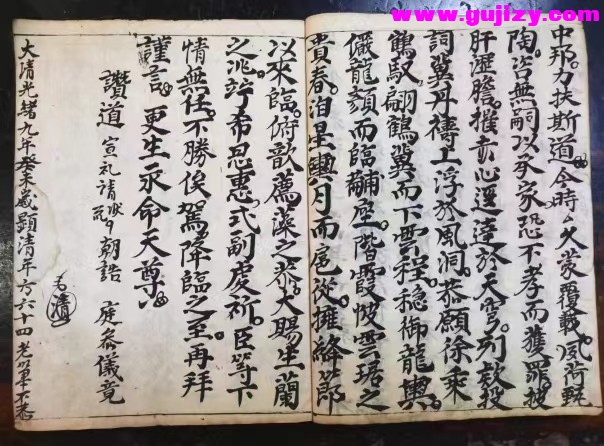 www.gujlzy.com
中邦力扶斯道今時久蒙覆載夙荷甄
陶咨無嗣以承家恐不孝而獲罪披
肝瀝膽摧赤心遥達於天穹列欵投
詞冀丹禱上浮於風洞恭願徐乘
鶴馭翩鶴翼而下雲程穩御龍輿
儼龍顏而臨黼座階霞帔雲琚之
貴眷洎星輿月而扈從擁絳節
以來臨俯歆蘋藻之恭大賜生蘭
之兆竚希恩惠式副虔祈臣等下
情無任不勝俟駕降臨之至再拜
謹言更生永命天尊
讚道宣礼請 朝誥庭參儀竟
大清光緒九年癸未歲顯清年六六十四老筆不恭
清